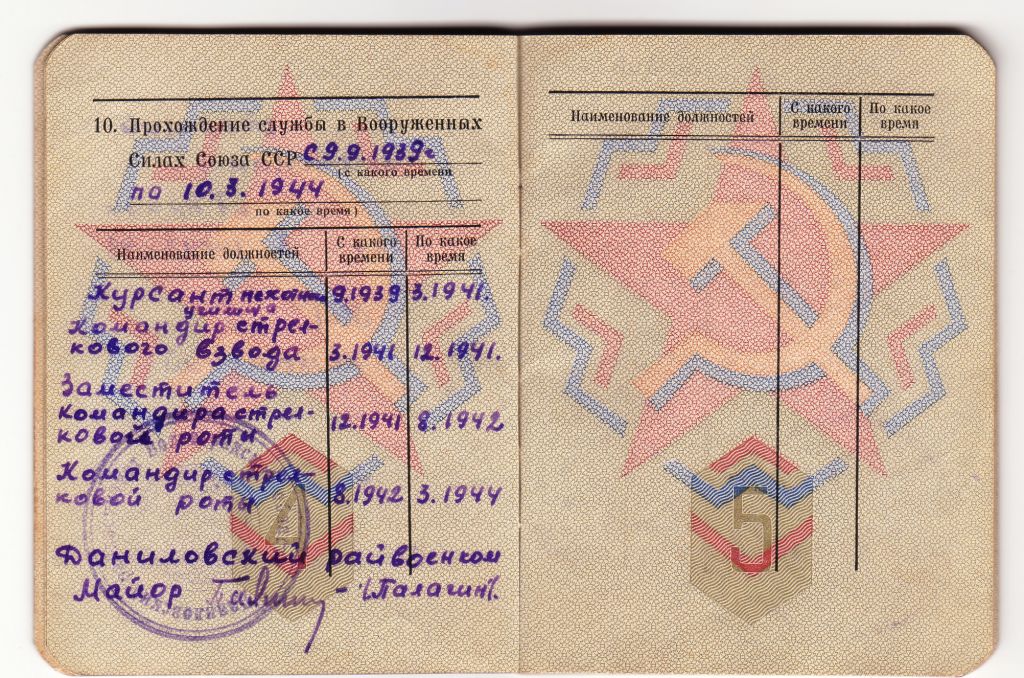 10. Прохождение службы в Вооруженных
Силах Союза ССР с 9.9.1939г
(с какого времени
по 10.3.1944
по какое время)
Наименование должностей С какого времени По какое время
Курсант пехотного 9.1939 3.1941.
училища
Командир стрел-
кового взвода 3.1941 12.1941.
Заместитель
командира стрел-
ковой роти 12.1941 8.1942
Командир стрел-
ковой роти 8.1942 3.1944
Даниловский райвоенком
Майор - (Палагин).
4
Наименование должностей С какого времени По какое время
5